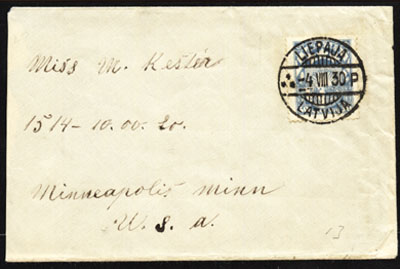 LIEPAJA
-4 VIII 30 P
LATVIJA
Miss M. Kester
1514-10. av. So.
Minneapolis Minn
U. S. a.
13